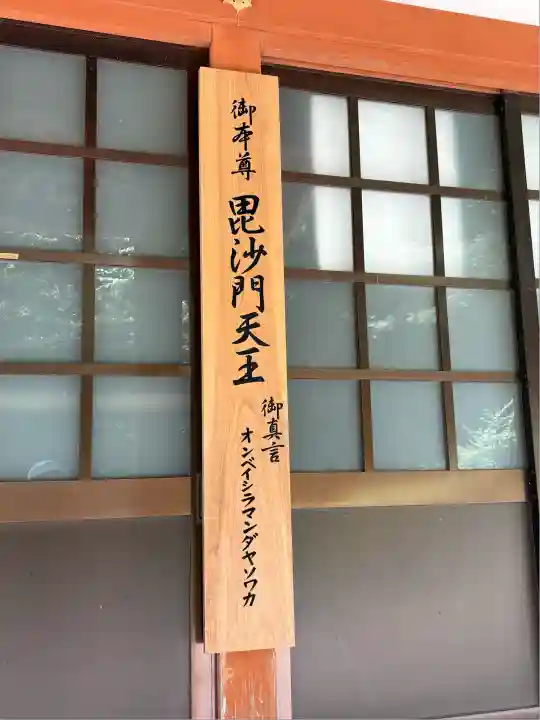 御本尊 毘沙門天王
御真言
オンベイシラマンダヤソワカ